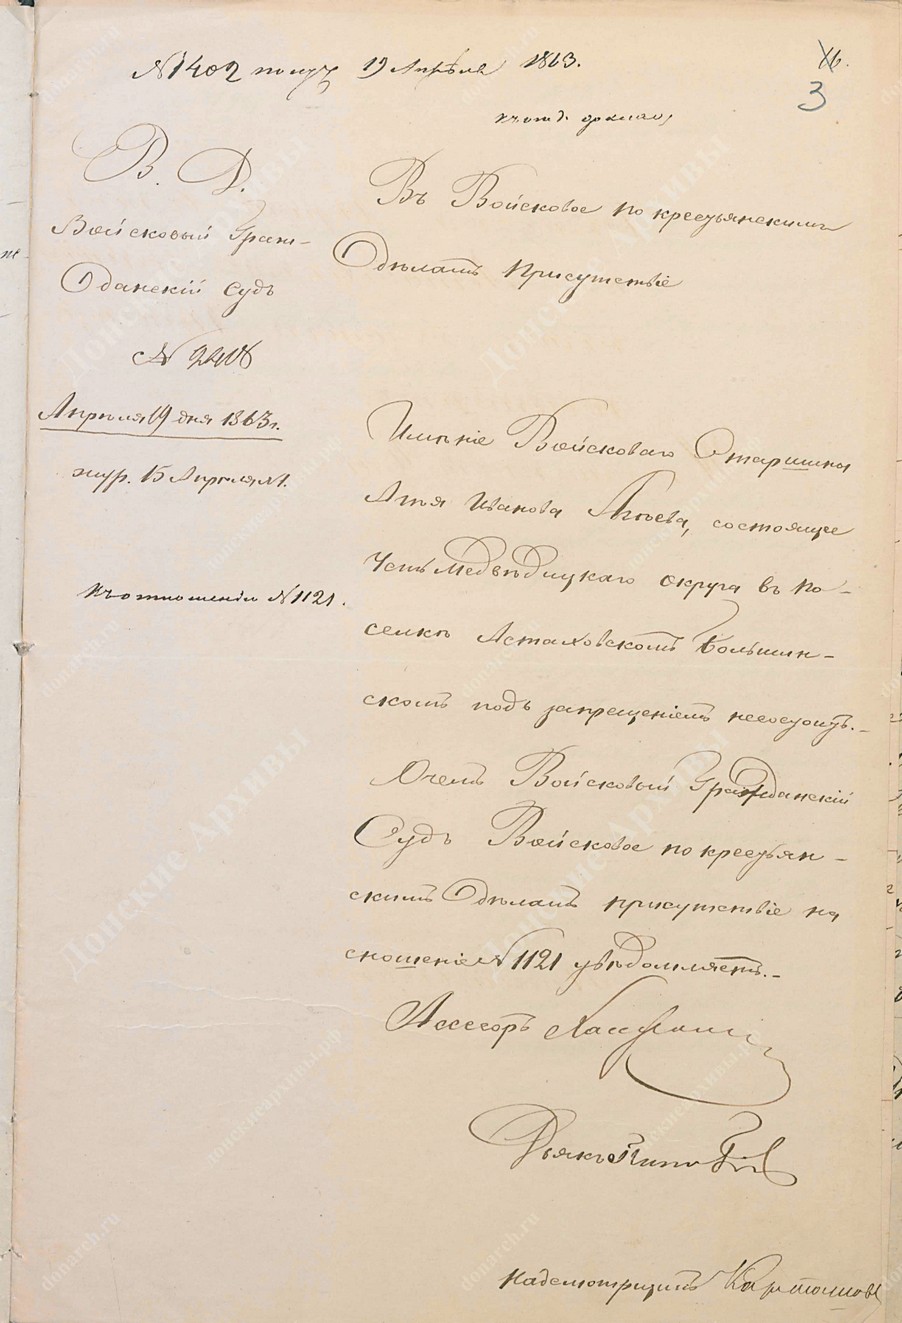 № 1402 получ 19 Апреля 1863.
3
В. Д.
Войсковый Граж-
данскій Судъ
№ 2408
Апреля 19 дня 1863 г.
жур. 15 Апреля
къ отношенію № 1121.
Въ Войсковое по крестьянскимъ
Дѣламъ Присутствіе
Имѣніе Войсковаго Старшины
Иванова состоящее
Усть Медвѣдицкаго округа въ по-
селкѣ Астаховскомъ Большин-
скомъ подъ запрещеніемъ несостоитъ.-
О чемъ Войсковый Гражданскій
Судъ Войсковое по крестьян-
скимъ Дѣламъ присутствіе на
сношеніе № 1121 увѣдомляетъ.-
Ассесоръ
Дьякъ
Надсмотрщикъ